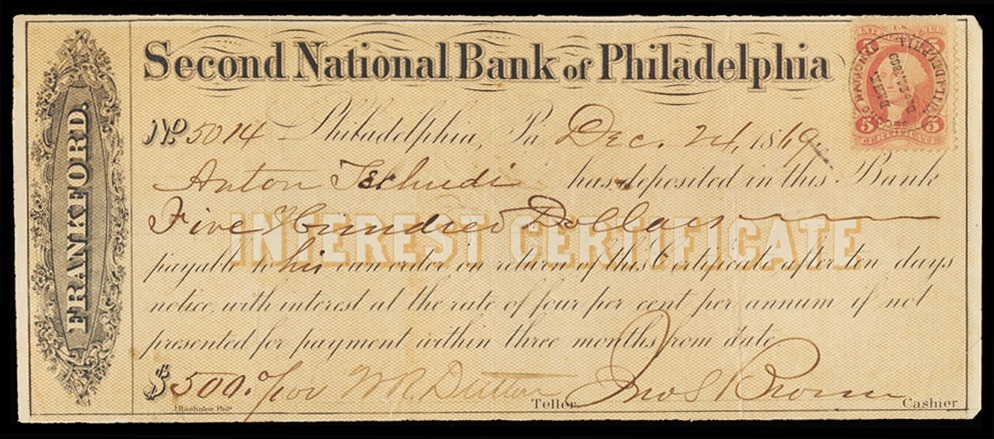 FRANKFORD.
Second National Bank of Philadelphia
No. 5014 Philadelphia, Pa Dec. 24, 1869
Anton Tschudi has deposited in this Bank
Five Hundred Dollars
INTEREST CERTIFICATE
payable to his own order on return of this Certificate after ten days
notice, with interest at the rate of four per cent per annum if not
presented for payment within three months from date
$500.0/00 W R Dutton Teller Jno S Brown Cashier